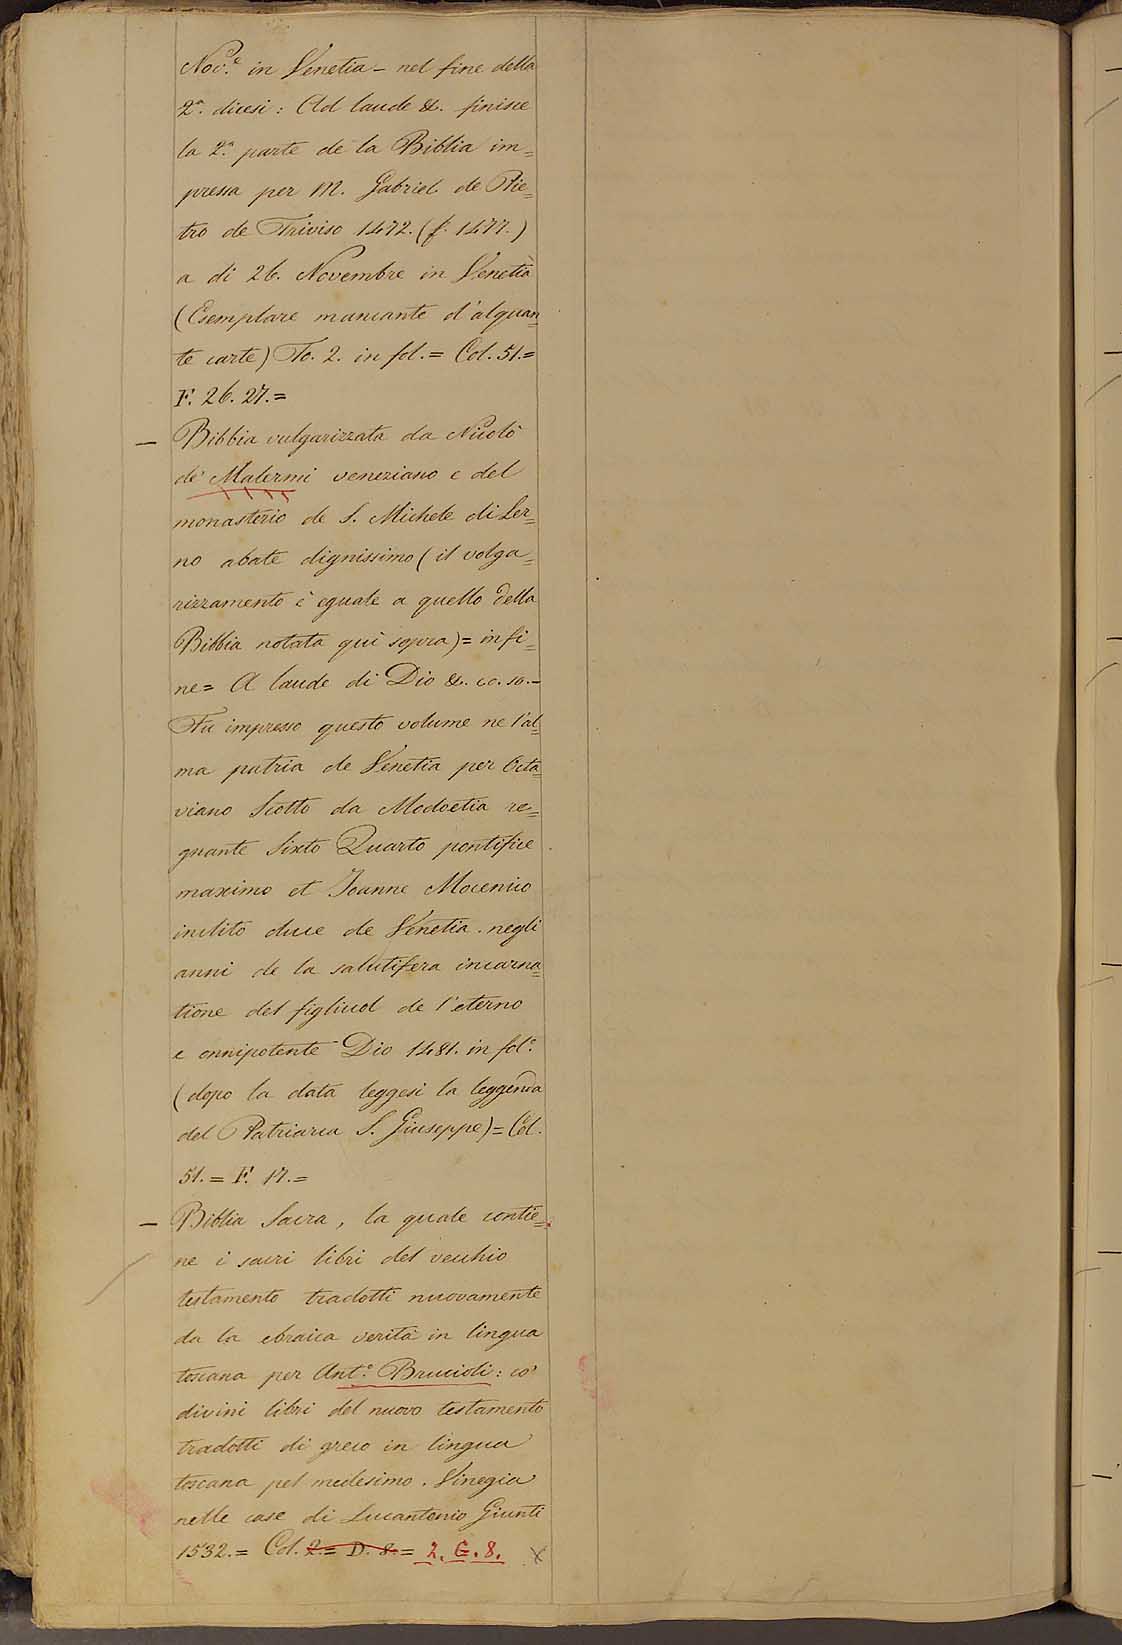 Nov.e in Venetia – nel fine della
2a. dicesi: Ad laude &. finisce
la 2a. parte de la Biblia im=
pressa per M. Gabriel de Pie=
tro de Triviso 1472. (f. 1477.)
a di 26. Novembre in Venetia
(Esemplare mancante d'alquan=
te carte) To. 2. in fol. = Col. 51. =
F. 26. 27. =
– Bibbia vulgarizzata da Nicolò
de' Malermi veneziano e del
monasterio de S. Michele di Ler=
no abate dignissimo (il volga=
rizzamento è eguale a quello della
Bibbia notata quì sopra) = in fi=
ne = A laude di Dio &. –
Fu impresso questo volume ne l'al=
ma patria de Venetia per Octa=
viano Scotto da Modoetia re=
gnante Sixto Quarto pontifice
maximo et Joanne Mocenico
inclito duce de Venetia. negli
anni de la salutifera incarna=
tione del figliuol de l'eterno
e onnipotente Dio 1481. in fol.o
(dopo la data leggesi la leggenda
del Patriarca S. Giuseppe) = Col.
51. = F. 17. =
– Biblia Sacra, la quale contie=
ne i sacri libri del vecchio
testamento tradotti nuovamente
da la ebraica verità in lingua
toscana per Ant.o Brucioli: co'
divini libri del nuovo testamento
tradotti di greco in lingua
toscana pel medesimo. Vinegia
nelle case di Lucantonio Giunti
1532. = Col. 2. = D. 8. = 2. G. 8. x